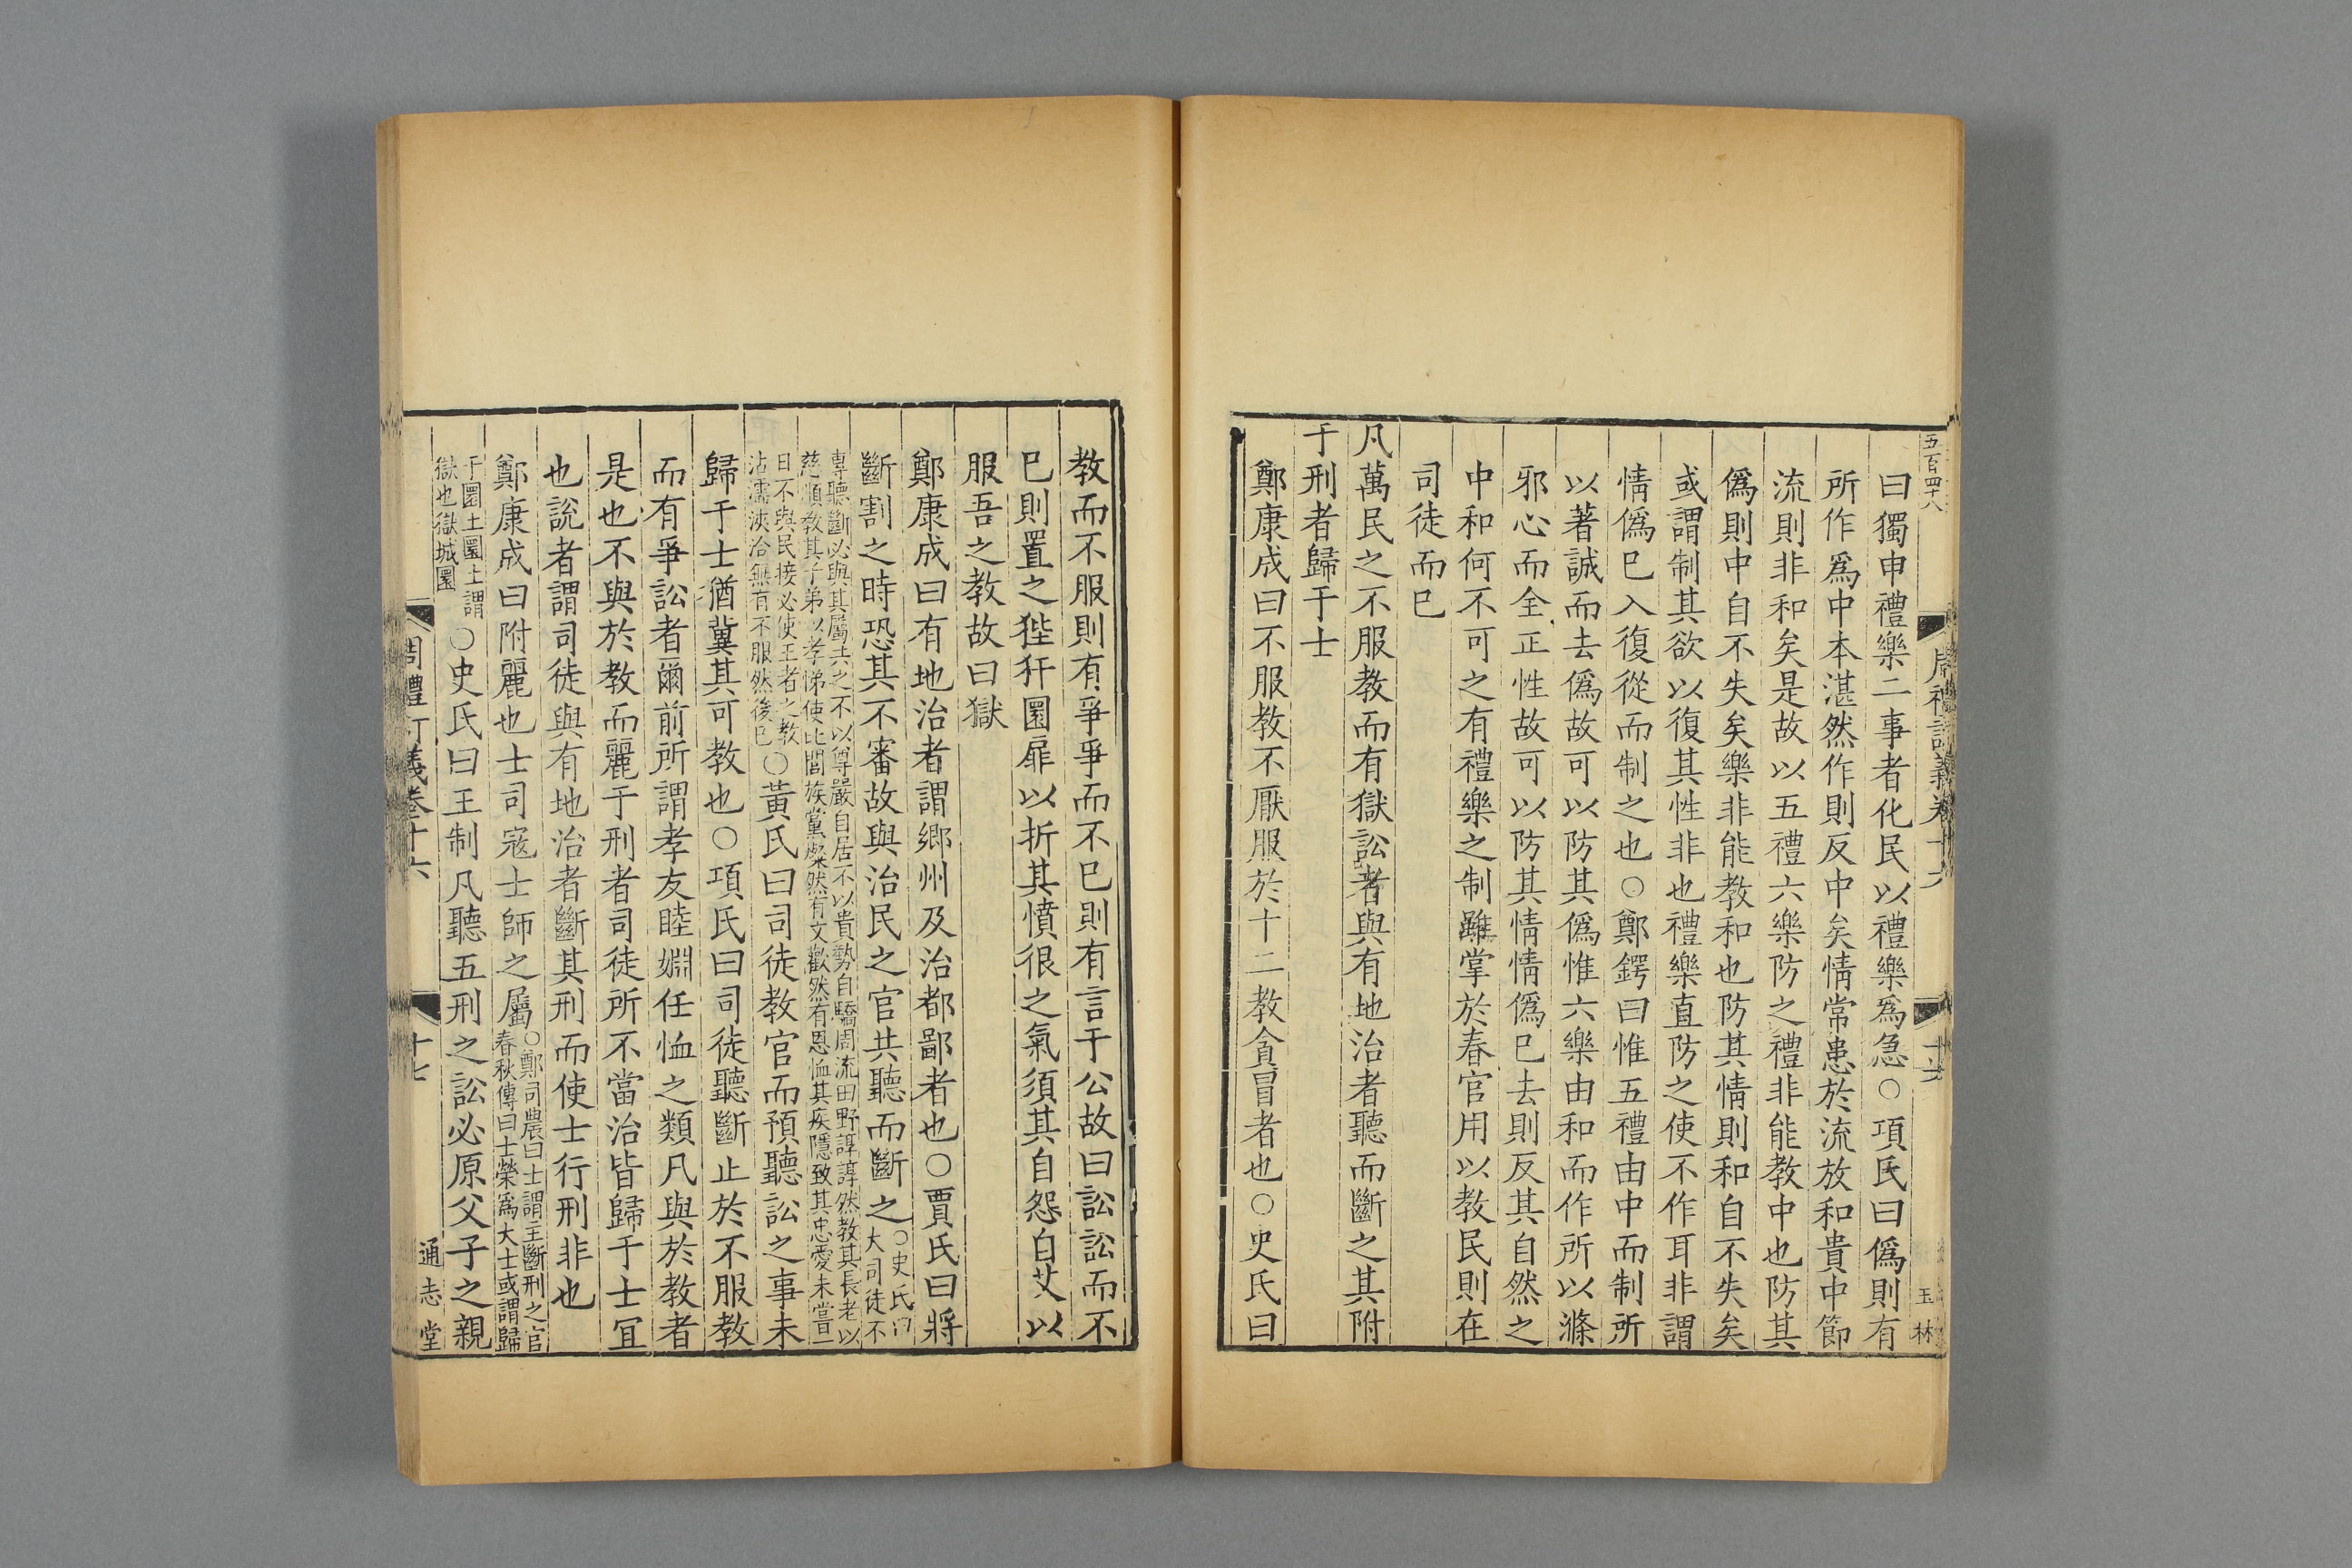 五百四十八
周禮訂義卷十六
玉林
曰獨申禮樂二事者化民以禮樂爲急○項氏曰僞則有
所作爲中本湛然作則反中矣情常患於流放和貴中節
流則非和矣是故以五禮六樂防之禮非能教中也防其
僞則中自不失矣樂非能教和也防其情則和自不失矣
或謂制其欲以復其性非也禮樂直防之使不作耳非謂
情僞巳入復從而制之也○鄭鍔曰惟五禮由中而制所
以著誠而去僞故可以防其僞惟六樂由和而作所以滌
邪心而全正性故可以防其情情僞巳去則反其自然之
中和何不可之有禮樂之制雖掌於春官用以教民則在
司徒而巳
凡萬民之不服教而有獄訟者與有地治者聽而斷之其附
于刑者歸于士
鄭康成曰不服教不厭服於十二教貪冒者也○史氏曰
教而不服則有爭爭而不巳則有言于公故曰訟訟而不
巳則置之狴犴圜扉以折其憤很之氣須其自怨自艾以
服吾之教故曰獄
鄭康成曰有地治者謂鄉州及治都鄙者也○賈氏曰將
斷割之時恐其不審故與治民之官共聽而斷之○史氏曰
大司徒不
專聽斷必與其屬共之不以尊嚴自居不以貴勢自驕周流田野諄諄然教其長老以
慈順教其子弟以孝悌使比閭族黨粲然有文歡然有恩恤其疾隱致其忠愛未嘗一
日不與民接必使王者之教
沾濡浹洽無有不服然後巳○黃氏曰司徒教官而預聽訟之事未
歸于士猶冀其可教也○項氏曰司徒聽斷止於不服教
而有爭訟者爾前所謂孝友睦婣任恤之類凡與於教者
是也不與於教而麗于刑者司徒所不當治皆歸于士冝
也說者謂司徒與有地治者斷其刑而使士行刑非也
鄭康成曰附麗也士司寇士師之屬○鄭司農曰士謂主斷刑之官
春秋傳曰士榮爲大士或謂歸
于圜土圜土謂
獄也獄城圜○史氏曰王制凡聽五刑之訟必原父子之親
周禮訂義卷十六
十七
通志堂